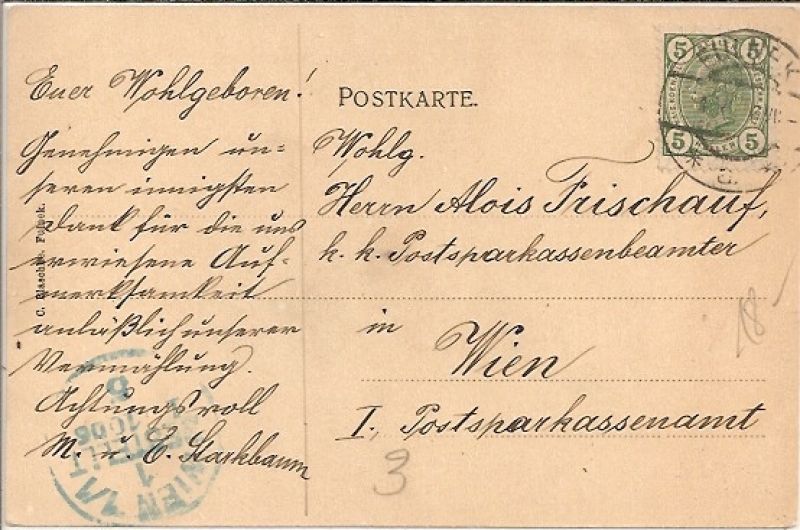 Euer Wohlgeboren!
Genehmigen un=
seren innigsten
Dank für die uns
erwiesene Auf=
merksamkeit
anläßlich unserer
Vermählung.
Achtungsvoll
M. u. E. Starkbaum
POSTKARTE.
Wohlg.
Herrn Alois Frischauf,
k. k. Postsparkassenbeamter
in
Wien
I., Postsparkassenamt
5 5
5 5
HELLER
18
3
WIEN 1/1